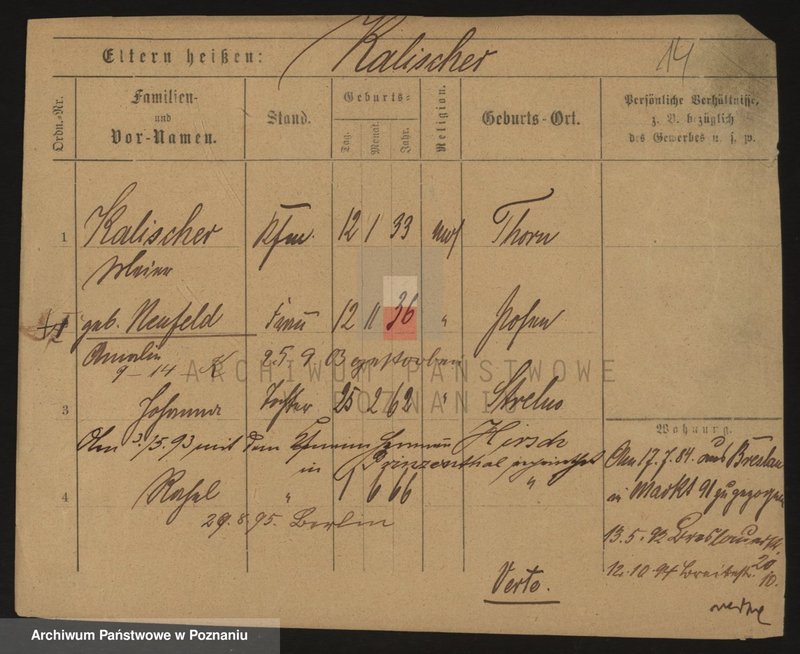 Eltern heißen: Kalischer 14
Ordn.-Nr.
Familien- und Vor-Namen.
Stand.
Geburts-
Tag. Monat. Jahr.
Religion.
Geburts-Ort.
Persönliche Verhältnisse, z. B. bezüglich des Gewerbes u. s. w.
1 Kalischer Kfm. 12 1 33 mos Thorn
Meier
geb. Neufeld Frau 12 11 36 " Posen
Amalie 25. 9 03 gestorben
9-14 K
3 Johanna Tochter 25 2 62 " Strelno
Am 3./5. 93 mit dem Kfmann Herman Hirsch
in Prinzenthal verheirathet
4 Rahel " 1 6 66 "
29.8.95 Berlin
Verte.
Wohnung.
Am 17.7.84 aus Breslau
Markt 91 zugezogen
13.5.92 Breslauerstr. 20
12.10.94 Breitestr. 10.
verte
ARCHIWUM PAŃSTWOWE
W POZNANIU
Archiwum Państwowe w Poznaniu